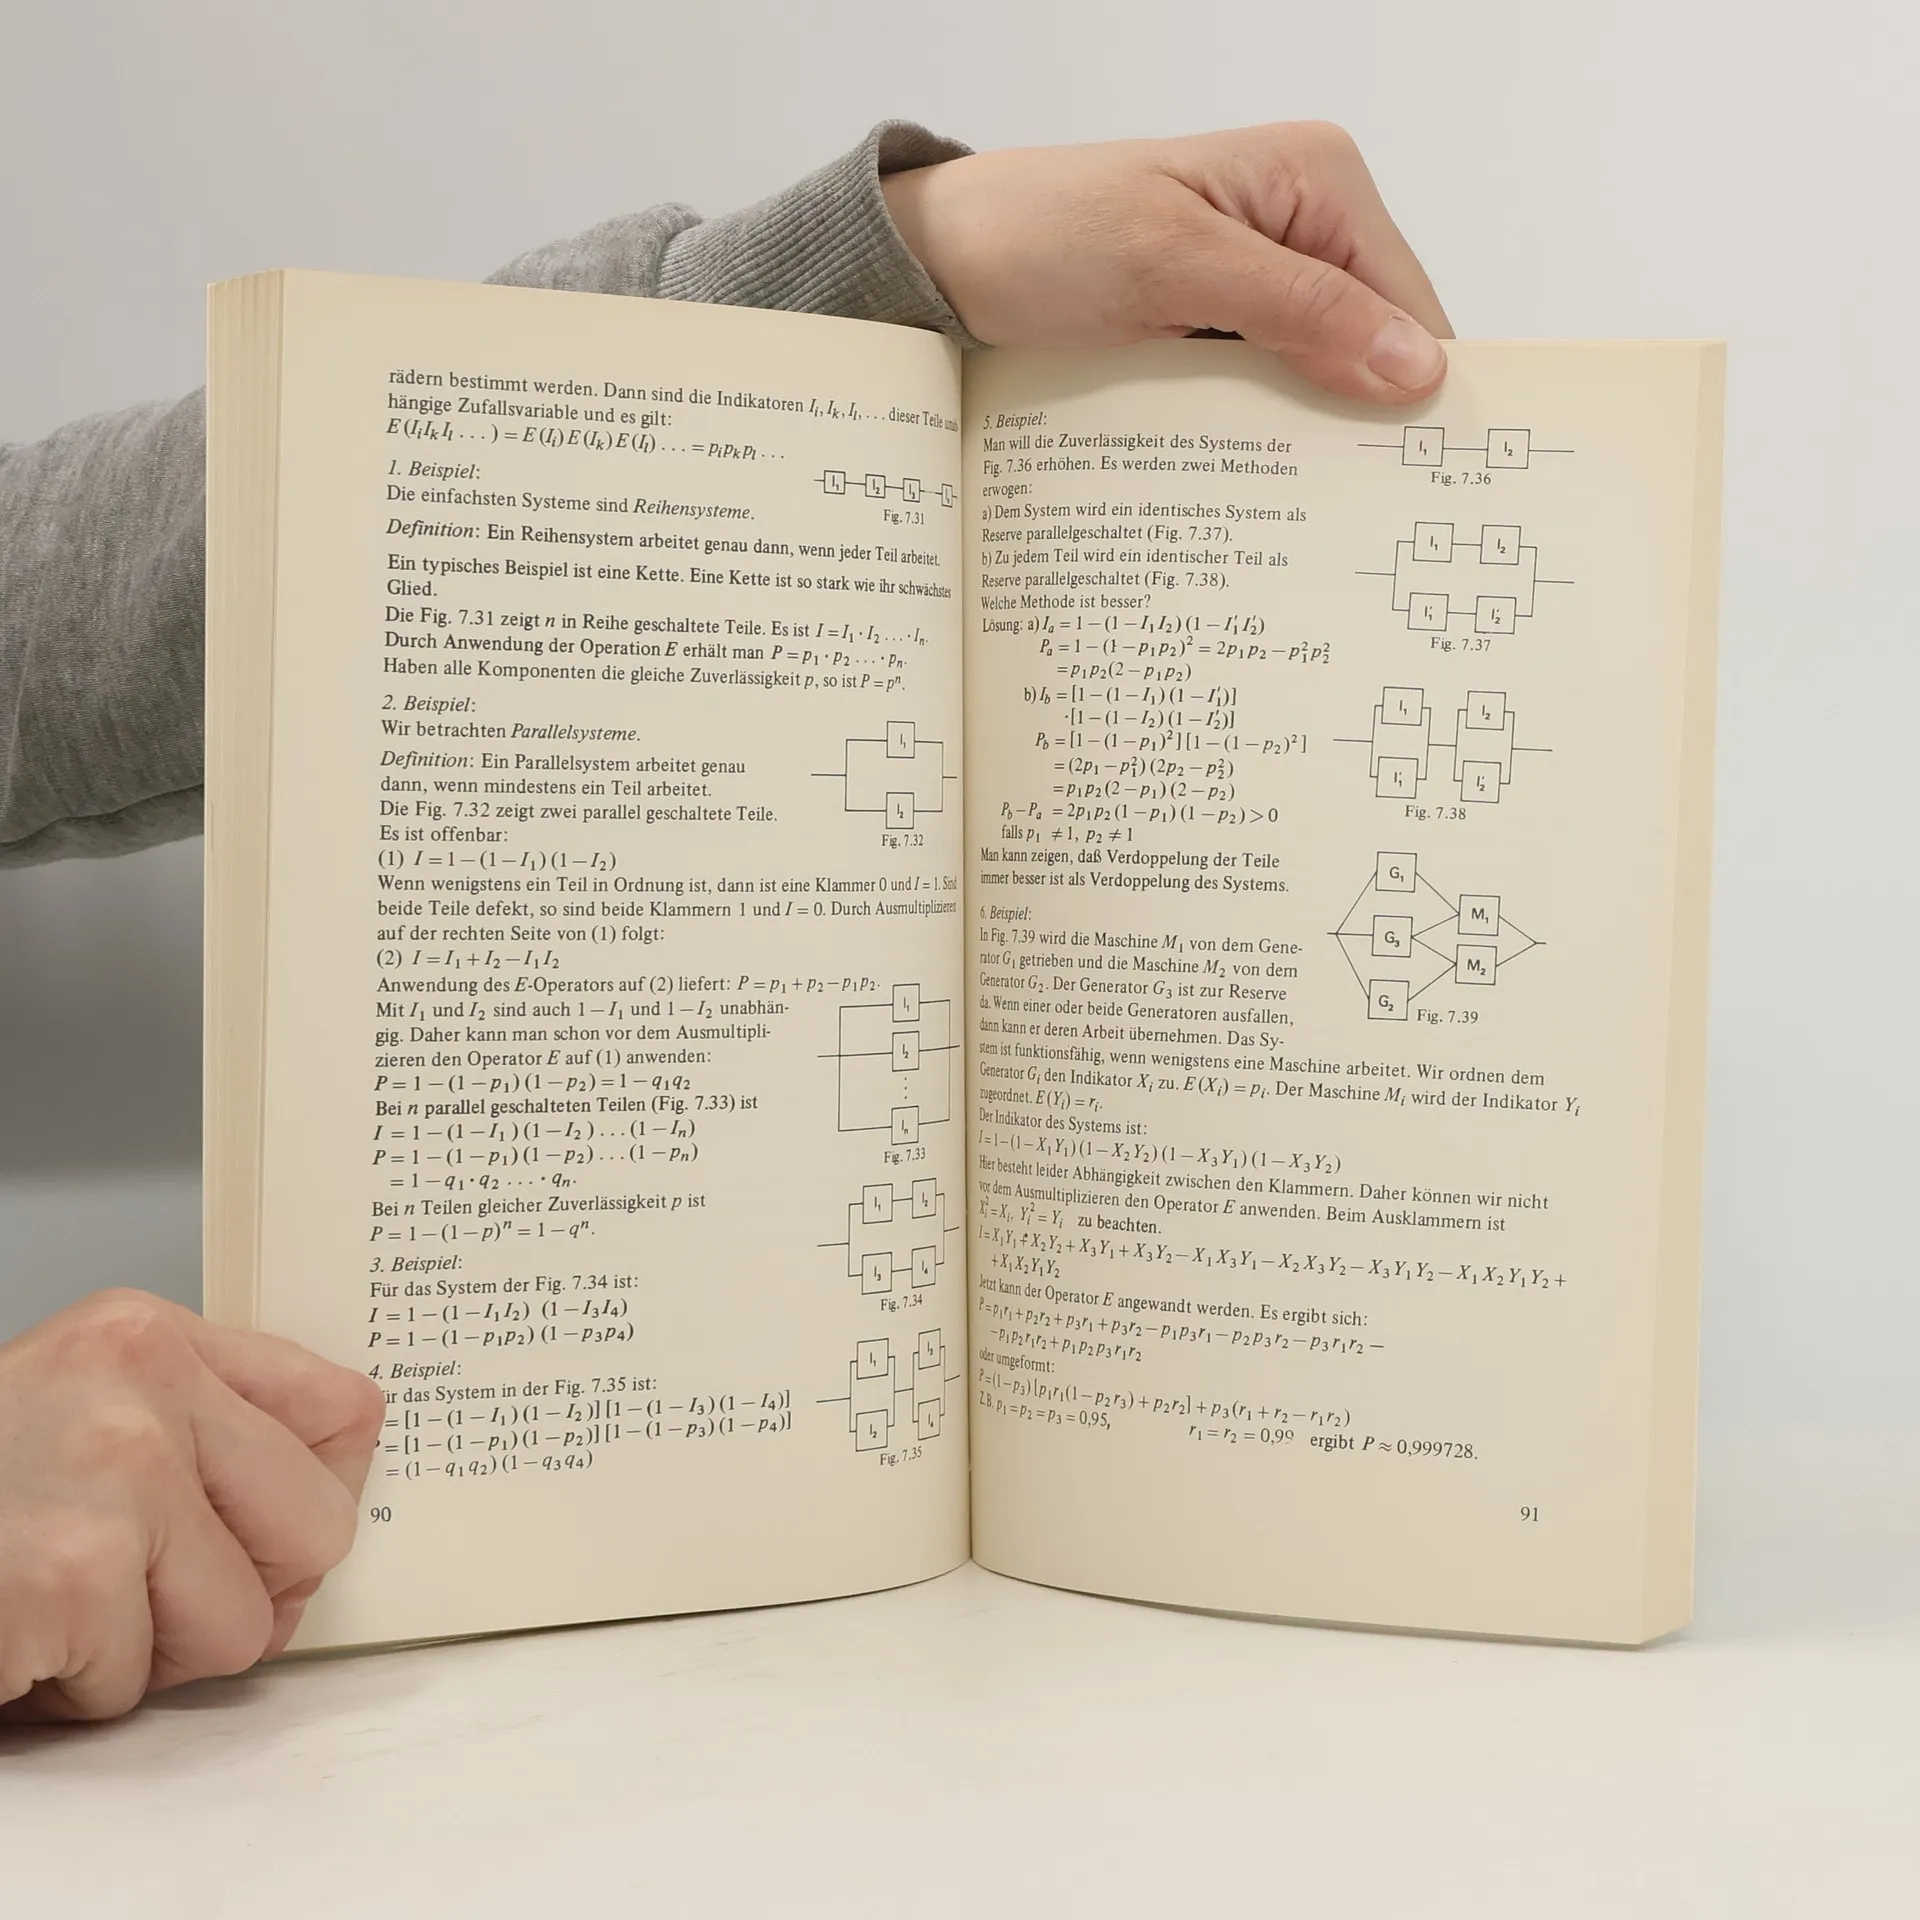 rädern bestimmt werden. Dann sind die Indikatoren I_i, I_k, I_l, ... dieser Teile unab-
hängige Zufallsvariable und es gilt:
E(I_i I_k I_l ...) = E(I_i) E(I_k) E(I_l) ... = p_i p_k p_l ...
1. Beispiel:
Die einfachsten Systeme sind Reihensysteme.
I_1 I_2 I_3 I_n
Fig. 7.31
Definition: Ein Reihensystem arbeitet genau dann, wenn jeder Teil arbeitet.
Ein typisches Beispiel ist eine Kette. Eine Kette ist so stark wie ihr schwächstes
Glied.
Die Fig. 7.31 zeigt n in Reihe geschaltete Teile. Es ist I = I_1 · I_2 ... · I_n.
Durch Anwendung der Operation E erhält man P = p_1 · p_2 ... · p_n.
Haben alle Komponenten die gleiche Zuverlässigkeit p, so ist P = p^n.
2. Beispiel:
Wir betrachten Parallelsysteme.
Definition: Ein Parallelsystem arbeitet genau
dann, wenn mindestens ein Teil arbeitet.
Die Fig. 7.32 zeigt zwei parallel geschaltete Teile.
Es ist offenbar:
I_1
I_2
Fig. 7.32
(1) I = 1 – (1 – I_1)(1 – I_2)
Wenn wenigstens ein Teil in Ordnung ist, dann ist eine Klammer 0 und I = 1. Sind
beide Teile defekt, so sind beide Klammern 1 und I = 0. Durch Ausmultiplizieren
auf der rechten Seite von (1) folgt:
(2) I = I_1 + I_2 – I_1 I_2
Anwendung des E-Operators auf (2) liefert: P = p_1 + p_2 – p_1 p_2.
Mit I_1 und I_2 sind auch 1 – I_1 und 1 – I_2 unabhän-
gig. Daher kann man schon vor dem Ausmultipli-
zieren den Operator E auf (1) anwenden:
P = 1 – (1 – p_1)(1 – p_2) = 1 – q_1 q_2
Bei n parallel geschalteten Teilen (Fig. 7.33) ist
I = 1 – (1 – I_1)(1 – I_2)...(1 – I_n)
P = 1 – (1 – p_1)(1 – p_2)...(1 – p_n)
= 1 – q_1 · q_2 ... · q_n.
I_1
I_2
I_n
Fig. 7.33
Bei n Teilen gleicher Zuverlässigkeit p ist
P = 1 – (1 – p)^n = 1 – q^n.
3. Beispiel:
Für das System der Fig. 7.34 ist:
I = 1 – (1 – I_1 I_2) (1 – I_3 I_4)
P = 1 – (1 – p_1 p_2) (1 – p_3 p_4)
I_1 I_2
I_3 I_4
Fig. 7.34
4. Beispiel:
ür das System in der Fig. 7.35 ist:
= [1 – (1 – I_1)(1 – I_2)][1 – (1 – I_3)(1 – I_4)]
= [1 – (1 – p_1)(1 – p_2)][1 – (1 – p_3)(1 – p_4)]
= (1 – q_1 q_2)(1 – q_3 q_4)
I_1 I_3
I_2 I_4
Fig. 7.35
90
5. Beispiel:
Man will die Zuverlässigkeit des Systems der
Fig. 7.36 erhöhen. Es werden zwei Methoden
erwogen:
I_1 I_2
Fig. 7.36
a) Dem System wird ein identisches System als
Reserve parallelgeschaltet (Fig. 7.37).
b) Zu jedem Teil wird ein identischer Teil als
Reserve parallelgeschaltet (Fig. 7.38).
Welche Methode ist besser?
I_1 I_2
I'_1 I'_2
Fig. 7.37
Lösung: a) I_a = 1 – (1 – I_1 I_2)(1 – I'_1 I'_2)
P_a = 1 – (1 – p_1 p_2)^2 = 2p_1 p_2 – p_1^2 p_2^2
= p_1 p_2 (2 – p_1 p_2)
b) I_b = [1 – (1 – I_1)(1 – I'_1)]
·[1 – (1 – I_2)(1 – I'_2)]
P_b = [1 – (1 – p_1)^2][1 – (1 – p_2)^2]
= (2p_1 – p_1^2)(2p_2 – p_2^2)
= p_1 p_2 (2 – p_1)(2 – p_2)
P_b – P_a = 2p_1 p_2 (1 – p_1)(1 – p_2) > 0
falls p_1 ≠ 1, p_2 ≠ 1
I_1 I_2
I'_1 I'_2
Fig. 7.38
Man kann zeigen, daß Verdoppelung der Teile
immer besser ist als Verdoppelung des Systems.
6. Beispiel:
In Fig. 7.39 wird die Maschine M_1 von dem Gene-
rator G_1 getrieben und die Maschine M_2 von dem
Generator G_2. Der Generator G_3 ist zur Reserve
da. Wenn einer oder beide Generatoren ausfallen,
dann kann er deren Arbeit übernehmen. Das Sy-
G_1
M_1
G_3
M_2
G_2
Fig. 7.39
stem ist funktionsfähig, wenn wenigstens eine Maschine arbeitet. Wir ordnen dem
Generator G_i den Indikator X_i zu. E(X_i) = p_i. Der Maschine M_i wird der Indikator Y_i
zugeordnet. E(Y_i) = r_i.
Der Indikator des Systems ist:
I = 1 – (1 – X_1 Y_1)(1 – X_2 Y_2)(1 – X_3 Y_1)(1 – X_3 Y_2)
Hier besteht leider Abhängigkeit zwischen den Klammern. Daher können wir nicht
vor dem Ausmultiplizieren den Operator E anwenden. Beim Ausklammern ist
X_i^2 = X_i, Y_i^2 = Y_i zu beachten.
I = X_1 Y_1 + X_2 Y_2 + X_3 Y_1 + X_3 Y_2 – X_1 X_3 Y_1 – X_2 X_3 Y_2 – X_3 Y_1 Y_2 – X_1 X_2 Y_1 Y_2 +
+ X_1 X_2 Y_1 Y_2
Jetzt kann der Operator E angewandt werden. Es ergibt sich:
P = p_1 r_1 + p_2 r_2 + p_3 r_1 + p_3 r_2 – p_1 p_3 r_1 – p_2 p_3 r_2 – p_3 r_1 r_2 –
– p_1 p_2 r_1 r_2 + p_1 p_2 p_3 r_1 r_2
oder umgeformt:
P = (1 – p_3)[p_1 r_1 (1 – p_2 r_3) + p_2 r_2] + p_3 (r_1 + r_2 – r_1 r_2)
Z.B. p_1 = p_2 = p_3 = 0,95, r_1 = r_2 = 0,99 ergibt P ≈ 0,999728.
91